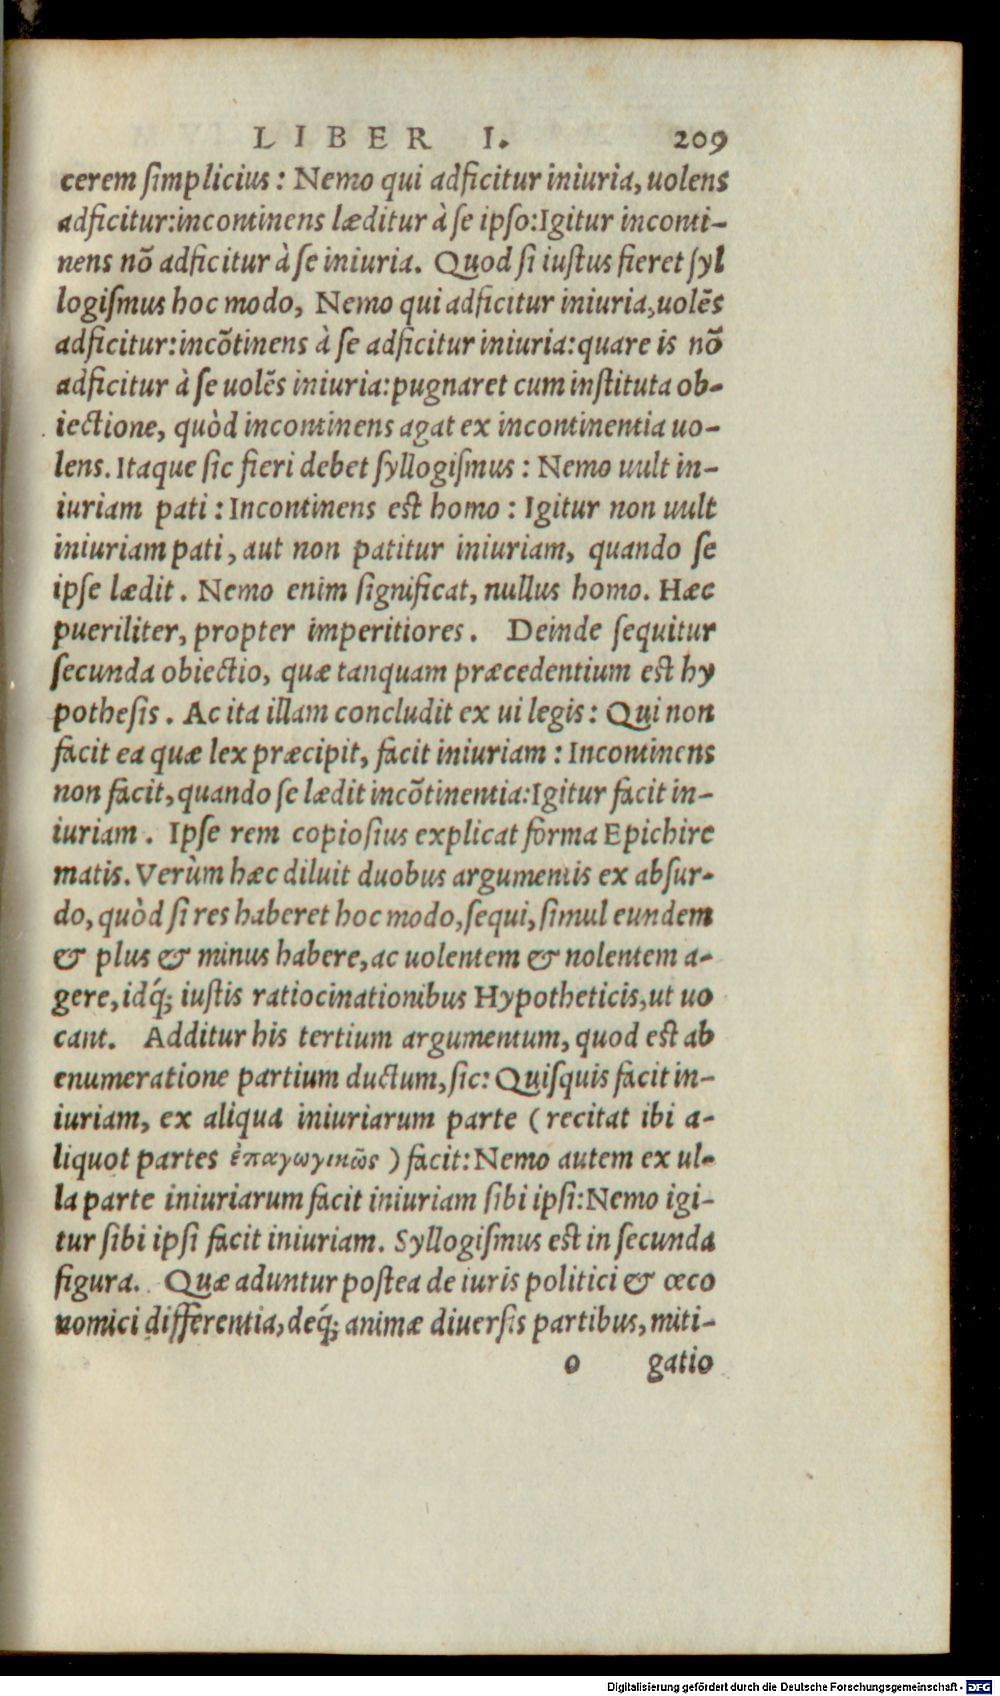 LIBER I. 209
cerem ſimplicius: Nemo qui adficitur iniuria, uolens
adficitur:incontinens læditur à ſe ipſo:Igitur inconti-
nens nõ adficitur à ſe iniuria. Quod ſi iuſtus fieret ſyl
logiſmus hoc modo, Nemo qui adficitur iniuria,uolẽs
adficitur:incõtinens à ſe adficitur iniuria:quare is nõ
adficitur à ſe uolẽs iniuria:pugnaret cum inſtituta ob-
iectione, quòd incontinens agat ex incontinentia uo-
lens. Itaque ſic fieri debet ſyllogiſmus: Nemo uult in-
iuriam pati: Incontinens eſt homo: Igitur non uult
iniuriam pati, aut non patitur iniuriam, quando ſe
ipſe lædit. Nemo enim ſignificat, nullus homo. Hæc
pueriliter, propter imperitiores. Deinde ſequitur
ſecunda obiectio, quæ tanquam præcedentium eſt hy
potheſis. Ac ita illam concludit ex ui legis: Qui non
facit ea quæ lex præcipit, facit iniuriam: Incontinens
non facit, quando ſe lædit incõtinentia:Igitur facit in-
iuriam. Ipſe rem copioſius explicat forma Epichire
matis. Verùm hæc diluit duobus argumentis ex abſur-
do, quòd ſi res haberet hoc modo, ſequi, ſimul eundem
& plus & minus habere, ac uolentem & nolentem a-
gere, idq́; iuſtis ratiocinationibus Hypotheticis, ut uo
cant. Additur his tertium argumentum, quod eſt ab
enumeratione partium ductum, ſic: Quiſquis facit in-
iuriam, ex aliqua iniuriarum parte (recitat ibi a-
liquot partes ἐπαγωγικῶς) facit: Nemo autem ex ul-
la parte iniuriarum facit iniuriam ſibi ipſi: Nemo igi-
tur ſibi ipſi facit iniuriam. Syllogiſmus eſt in ſecunda
figura. Quæ aduntur poſtea de iuris politici & œco
nomici differentia, deq́; animæ diuerſis partibus, miti-
o gatio
Digitalisierung gefördert durch die Deutsche Forschungsgemeinschaft - DFG